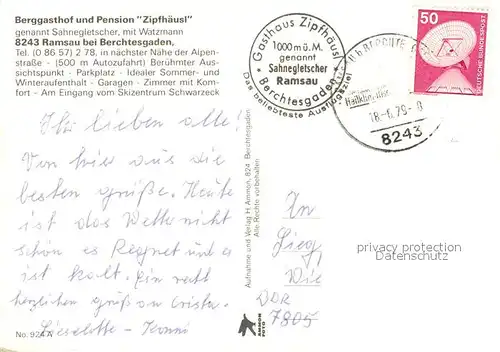 Berggasthof und Pension "Zipfhäusl"
genannt Sahnegletscher, mit Watzmann
8243 Ramsau bei Berchtesgaden,
Tel. (0 86 57) 2 78, in nächster Nähe der Alpen-
straße - (500 m Autozufahrt) Berühmter Aus-
sichtspunkt - Parkplatz - Idealer Sommer- und
Winteraufenthalt - Garagen - Zimmer mit Kom-
fort - Am Eingang vom Skizentrum Schwarzeck
Gasthaus Zipfhäusl
1000 m ü. M.
genannt
Sahnegletscher
Ramsau
Berchtesgaden
Das beliebteste Ausflugsziel
8243
50
DEUTSCHE BUNDESPOST
Ihr lieben alle!
Von hier aus die
besten Grüße. Heute
ist das Wetter nicht
schön es Regnet und es
ist kalt. Ein recht
herzlichen Gruß an Christa.
Lieselotte -
No. 924 A
Aufnahme und Verlag H. Ammon, 824 Berchtesgaden
Alle Rechte vorbehalten
AMMON
FOTO
privacy protection
Datenschutz
DDR
7805